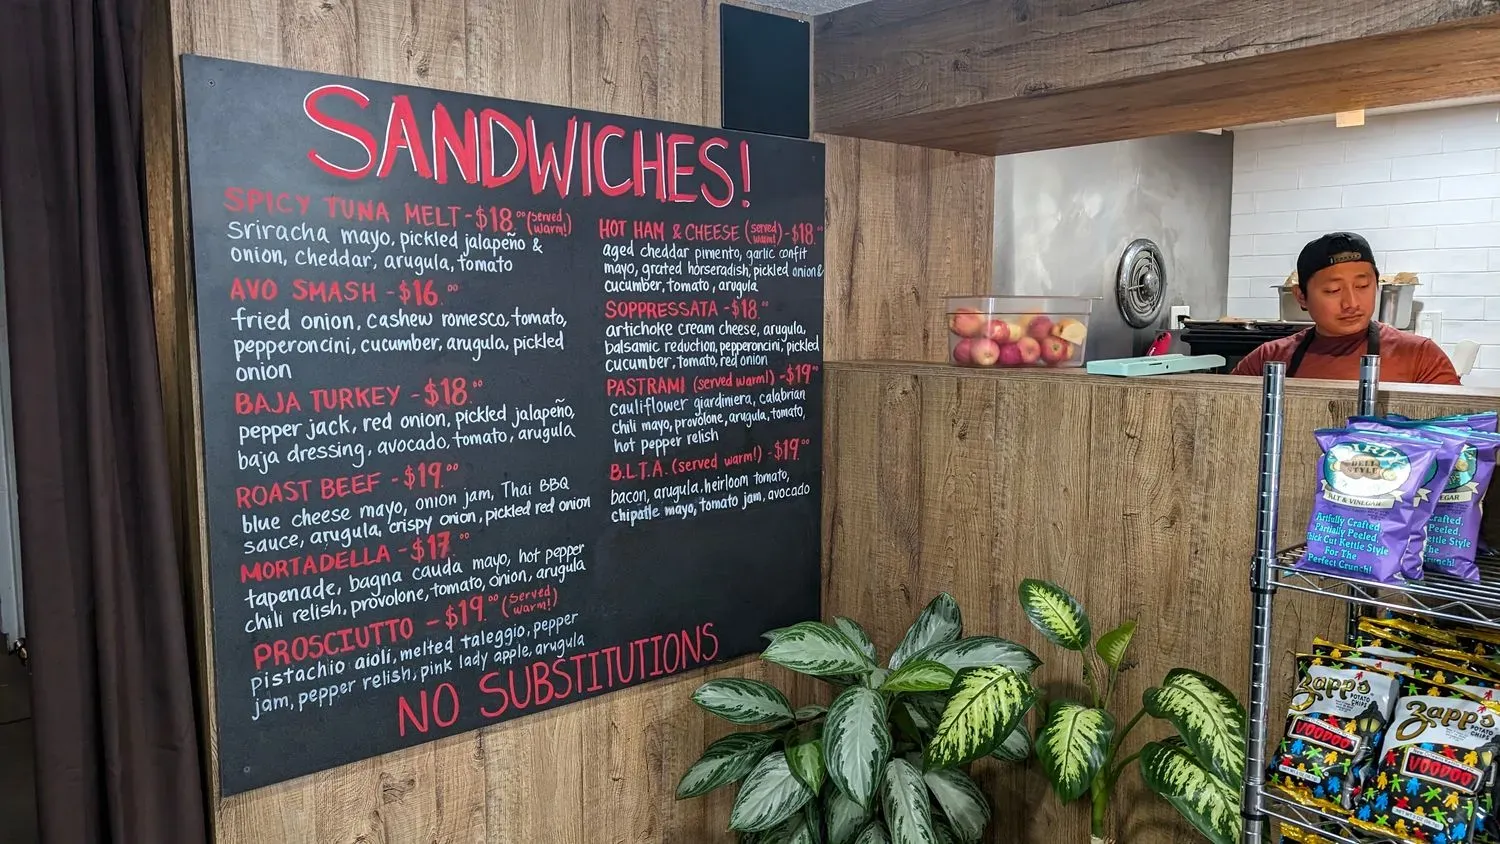 SANDWICHES!
SPICY TUNA MELT - $18.00 (served warm!)
Sriracha mayo, pickled jalapeño &
onion, cheddar, arugula, tomato
AVO SMASH - $16.00
fried onion, cashew romesco, tomato,
pepperoncini, cucumber, arugula, pickled
onion
BAJA TURKEY - $18.00
pepper jack, red onion, pickled jalapeño,
baja dressing, avocado, tomato, arugula
ROAST BEEF - $19.00
blue cheese mayo, onion jam, Thai BBQ
sauce, arugula, crispy onion, pickled red onion
MORTADELLA - $17.00
tapenade, bagna cauda mayo, hot pepper
chili relish, provolone, tomato, onion, arugula
PROSCIUTTO - $19.00 (served warm!)
pistachio aioli, melted taleggio, pepper
jam, pepper relish, pink lady apple, arugula
HOT HAM & CHEESE (served warm!) - $18.00
aged cheddar pimento, garlic confit
mayo, grated horseradish, pickled onion &
cucumber, tomato, arugula
SOPPRESSATA - $18.00
artichoke cream cheese, arugula,
balsamic reduction, pepperoncini, pickled
cucumber, tomato, red onion
PASTRAMI (served warm!) - $19.00
cauliflower giardiniera, calabrian
chili mayo, provolone, arugula, tomato,
hot pepper relish
B.L.T.A. (served warm!) - $19.00
bacon, arugula, heirloom tomato,
chipotle mayo, tomato jam, avocado
NO SUBSTITUTIONS
DELI
STYLE
Artfully Crafted,
Partially Peeled,
Kettle Style
For The
Perfect Crunch!
Zapp's
POTATO
CHIPS
VOODOO
Zapp's
POTATO
CHIPS
VOODOO